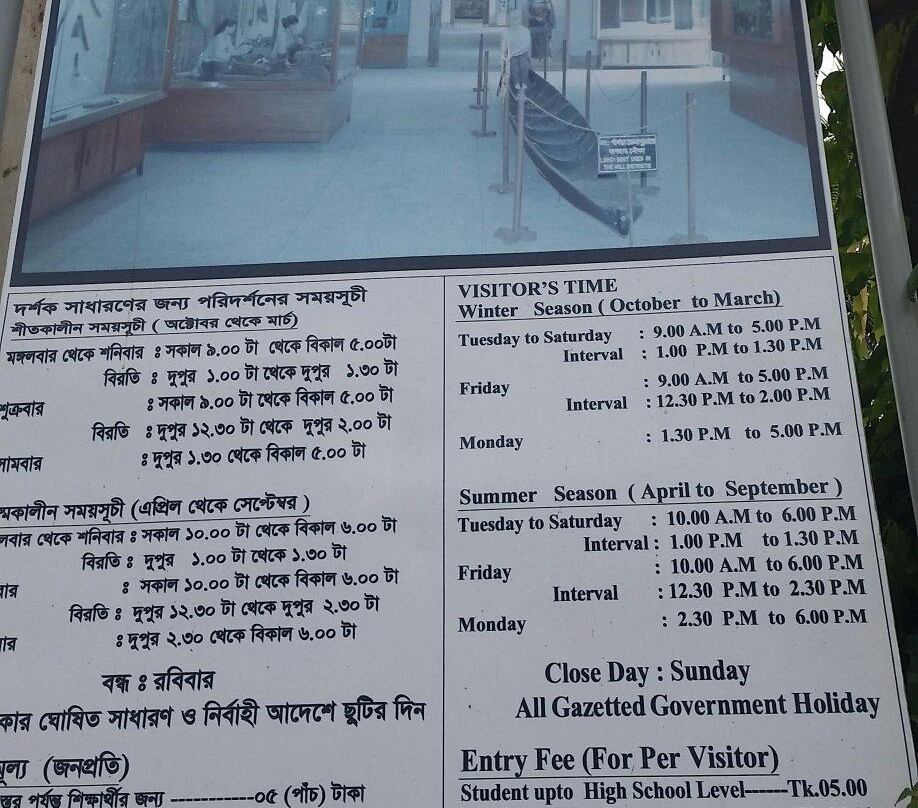 LONG BOAT USED IN
THE HILL DISTRICTS
দর্শক সাধারণের জন্য পরিদর্শনের সময়সূচী
শীতকালীন সময়সূচী ( অক্টোবর থেকে মার্চ)
মঙ্গলবার থেকে শনিবার : সকাল ৯.০০ টা থেকে বিকাল ৫.০০টা
বিরতি : দুপুর ১.০০ টা থেকে দুপুর ১.৩০ টা
শুক্রবার : সকাল ৯.০০ টা থেকে বিকাল ৫.০০ টা
বিরতি : দুপুর ১২.৩০ টা থেকে দুপুর ২.০০ টা
সোমবার : দুপুর ১.৩০ থেকে বিকাল ৫.০০ টা
মকালীন সময়সূচী (এপ্রিল থেকে সেপ্টেম্বর )
লবার থেকে শনিবার : সকাল ১০.০০ টা থেকে বিকাল ৬.০০ টা
বিরতি : দুপুর ১.০০ টা থেকে ১.৩০ টা
বার : সকাল ১০.০০ টা থেকে বিকাল ৬.০০ টা
বিরতি : দুপুর ১২.৩০ টা থেকে দুপুর ২.৩০ টা
বার : দুপুর ২.৩০ থেকে বিকাল ৬.০০ টা
বন্ধ : রবিবার
কার ঘোষিত সাধারণ ও নির্বাহী আদেশে ছুটির দিন
মূল্য (জনপ্রতি)
স্তর পর্যন্ত শিক্ষার্থীর জন্য -----------০৫ (পাঁচ) টাকা
VISITOR'S TIME
Winter Season ( October to March)
Tuesday to Saturday : 9.00 A.M to 5.00 P.M
Interval : 1.00 P.M to 1.30 P.M
Friday : 9.00 A.M to 5.00 P.M
Interval : 12.30 P.M to 2.00 P.M
Monday : 1.30 P.M to 5.00 P.M
Summer Season ( April to September )
Tuesday to Saturday : 10.00 A.M to 6.00 P.M
Interval : 1.00 P.M to 1.30 P.M
Friday : 10.00 A.M to 6.00 P.M
Interval : 12.30 P.M to 2.30 P.M
Monday : 2.30 P.M to 6.00 P.M
Close Day : Sunday
All Gazetted Government Holiday
Entry Fee (For Per Visitor)
Student upto High School Level------Tk.05.00